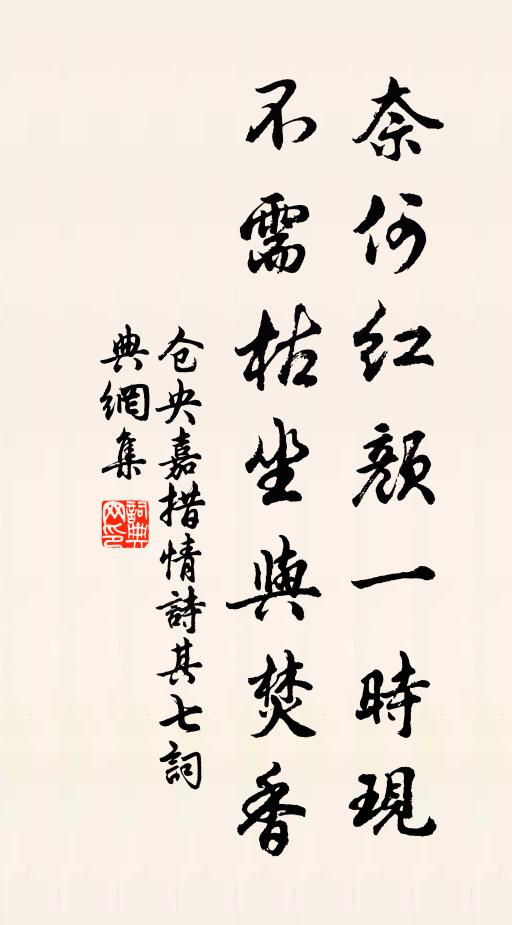 奈何红顏一時現
不需枯坐與焚香
仓央嘉措情詩其七詞
典網集
詞典
网印